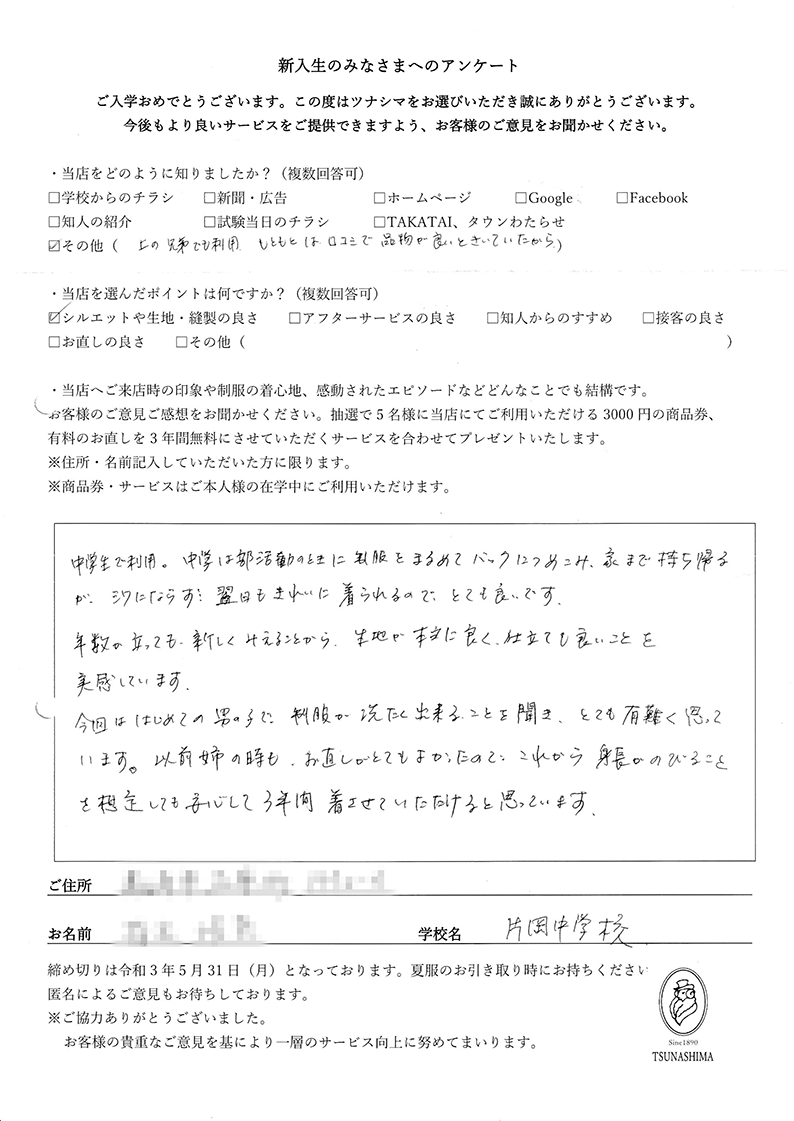 新入生のみなさまへのアンケート
ご入学おめでとうございます。この度はツナシマをお選びいただき誠にありがとうございます。
今後もより良いサービスをご提供できますよう、お客様のご意見をお聞かせください。
・当店をどのように知りましたか?(複数回答可)
□学校からのチラシ □新聞・広告 □ホームページ □Google □Facebook
□知人の紹介 □試験当日のチラシ □TAKATAI、タウンわたらせ
☑その他( 上の兄弟でも利用 もともとは口コミで品物が良いときいていたから)
・当店を選んだポイントは何ですか?(複数回答可)
☑シルエットや生地・縫製の良さ □アフターサービスの良さ □知人からのすすめ □接客の良さ
□お直しの良さ □その他( )
・当店へご来店時の印象や制服の着心地、感動されたエピソードなどどんなことでも結構です。
お客様のご意見ご感想をお聞かせください。抽選で5名様に当店にてご利用いただける3000円の商品券、
有料のお直しを3年間無料にさせていただくサービスを合わせてプレゼントいたします。
※住所・名前記入していただいた方に限ります。
※商品券・サービスはご本人様の在学中にご利用いただけます。
中学生で利用。中学は部活動のときに制服をまるめてバックにつめこみ、家まで持ち帰る
が、シワにならず翌日もきれいに着られるので、とても良いです。
年数が立っても、新しくみえることから、生地が本当に良く、仕立ても良いことを
実感しています。
今回ははじめての男の子で、制服が洗たく出来ることを聞き、とても有難く思って
います。以前姉の時も、お直しがとてもよかったので、これから身長がのびること
を想定しても安心して3年間着させていただけると思っています。
ご住所
お名前 学校名 片岡中学校
締め切りは令和3年5月31日(月)となっております。夏服のお引き取り時にお持ちください
匿名によるご意見もお待ちしております。
※ご協力ありがとうございました。
お客様の貴重なご意見を基により一層のサービス向上に努めてまいります。
Sine1890
TSUNASHIMA